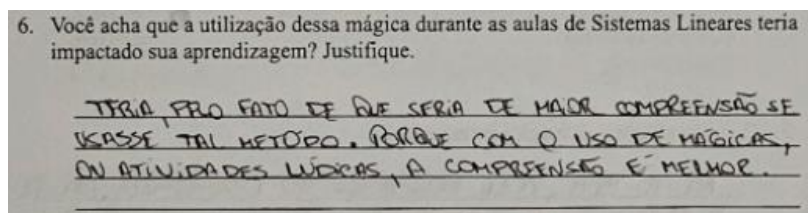 6. Você acha que a utilização dessa mágica durante as aulas de Sistemas Lineares teria
impactado sua aprendizagem? Justifique.
TERIA, PELO FATO DE QUE SERIA DE MAIOR COMPREENSÃO SE
USASSE TAL METÓDO. PORQUE COM O USO DE MÁGICAS,
OU ATIVIDADES LÚDICAS, A COMPREENSÃO É MELHOR.